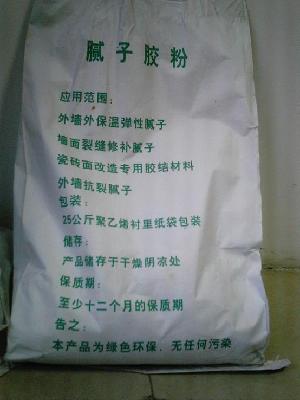 腻子胶粉
应用范围:
外墙外保温弹性腻子
墙面裂缝修补腻子
瓷砖面改造专用胶结材料
外墙抗裂腻子
包装:
25公斤聚乙烯衬里纸袋包装
储存:
产品储存于干燥阴凉处
保质期:
至少十二个月的保质期
告之:
本产品为绿色环保、无任何污染